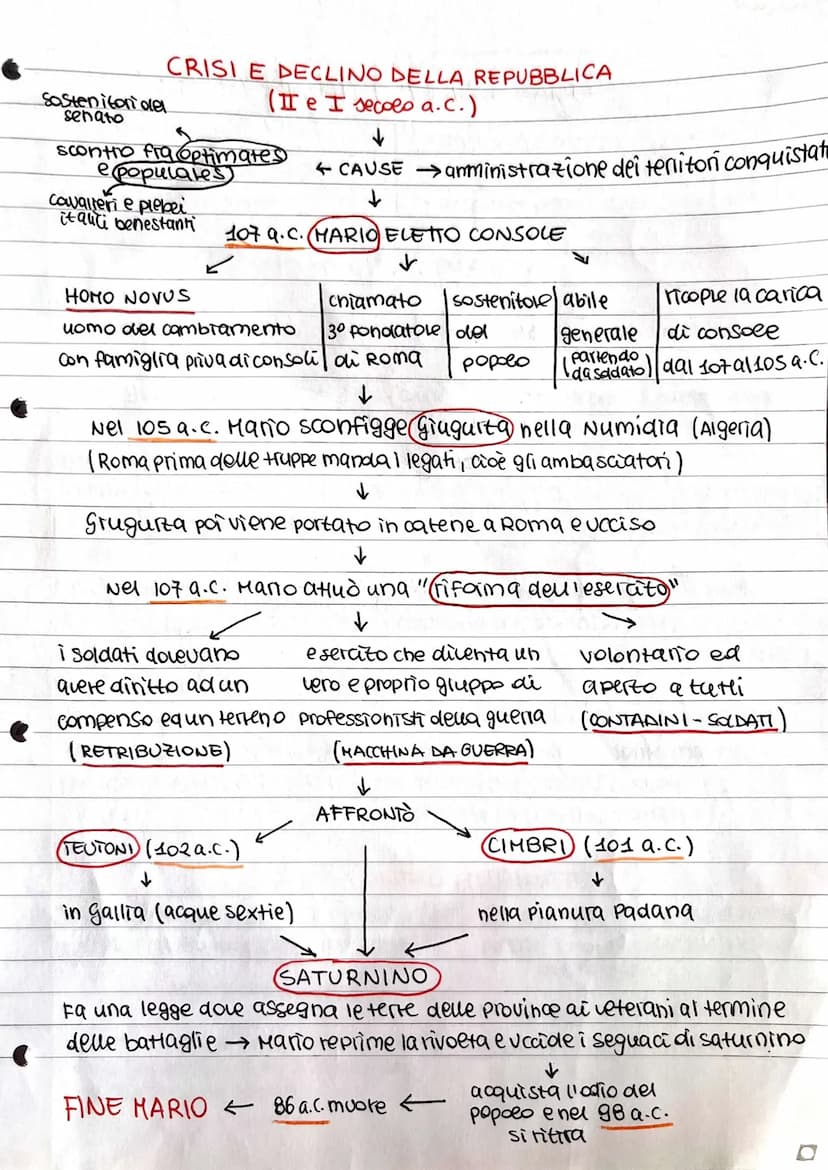 CRISI E DECLINO DELLA REPUBBLICA
(II e I secolo a.C.)
sostenitori del
senato
scontro fra optimates
e populares
← CAUSE → amministrazione dei territori conquistati
cavalieri e plebei
italici benestanti
107 a.C. MARIO ELETTO CONSOLE
HOMO NOVUS
uomo del cambiamento
con famiglia priva di consoli
chiamato
3° fondatore
di Roma
sostenitore
del
popolo
abile
generale
(partendo
da soldato)
ricopre la carica
di console
dal 107 al 105 a.C.
Nel 105 a.C. Mario sconfigge Giugurta nella Numidia (Algeria)
(Roma prima delle truppe manda i legati, cioè gli ambasciatori)
Giugurta poi viene portato in catene a Roma e ucciso
Nel 107 a.C. Mario attuò una "riforma dell'esercito"
i soldati dovevano
avere diritto ad un
compenso e a un terreno
(RETRIBUZIONE)
esercito che diventa un
vero e proprio gruppo di
professionisti della guerra
(MACCHINA DA GUERRA)
volontario ed
aperto a tutti
(CONTADINI - SOLDATI)
AFFRONTÒ
TEUTONI (102 a.C.)
in Gallia (acque sextie)
CIMBRI (101 a.C.)
nella Pianura Padana
SATURNINO
Fa una legge dove assegna le terre delle province ai veterani al termine
delle battaglie → Mario reprime la rivolta e uccide i seguaci di Saturnino
acquista l'odio del
popolo e nel 98 a.C.
si ritira
FINE MARIO ← 86 a.C. muore ←